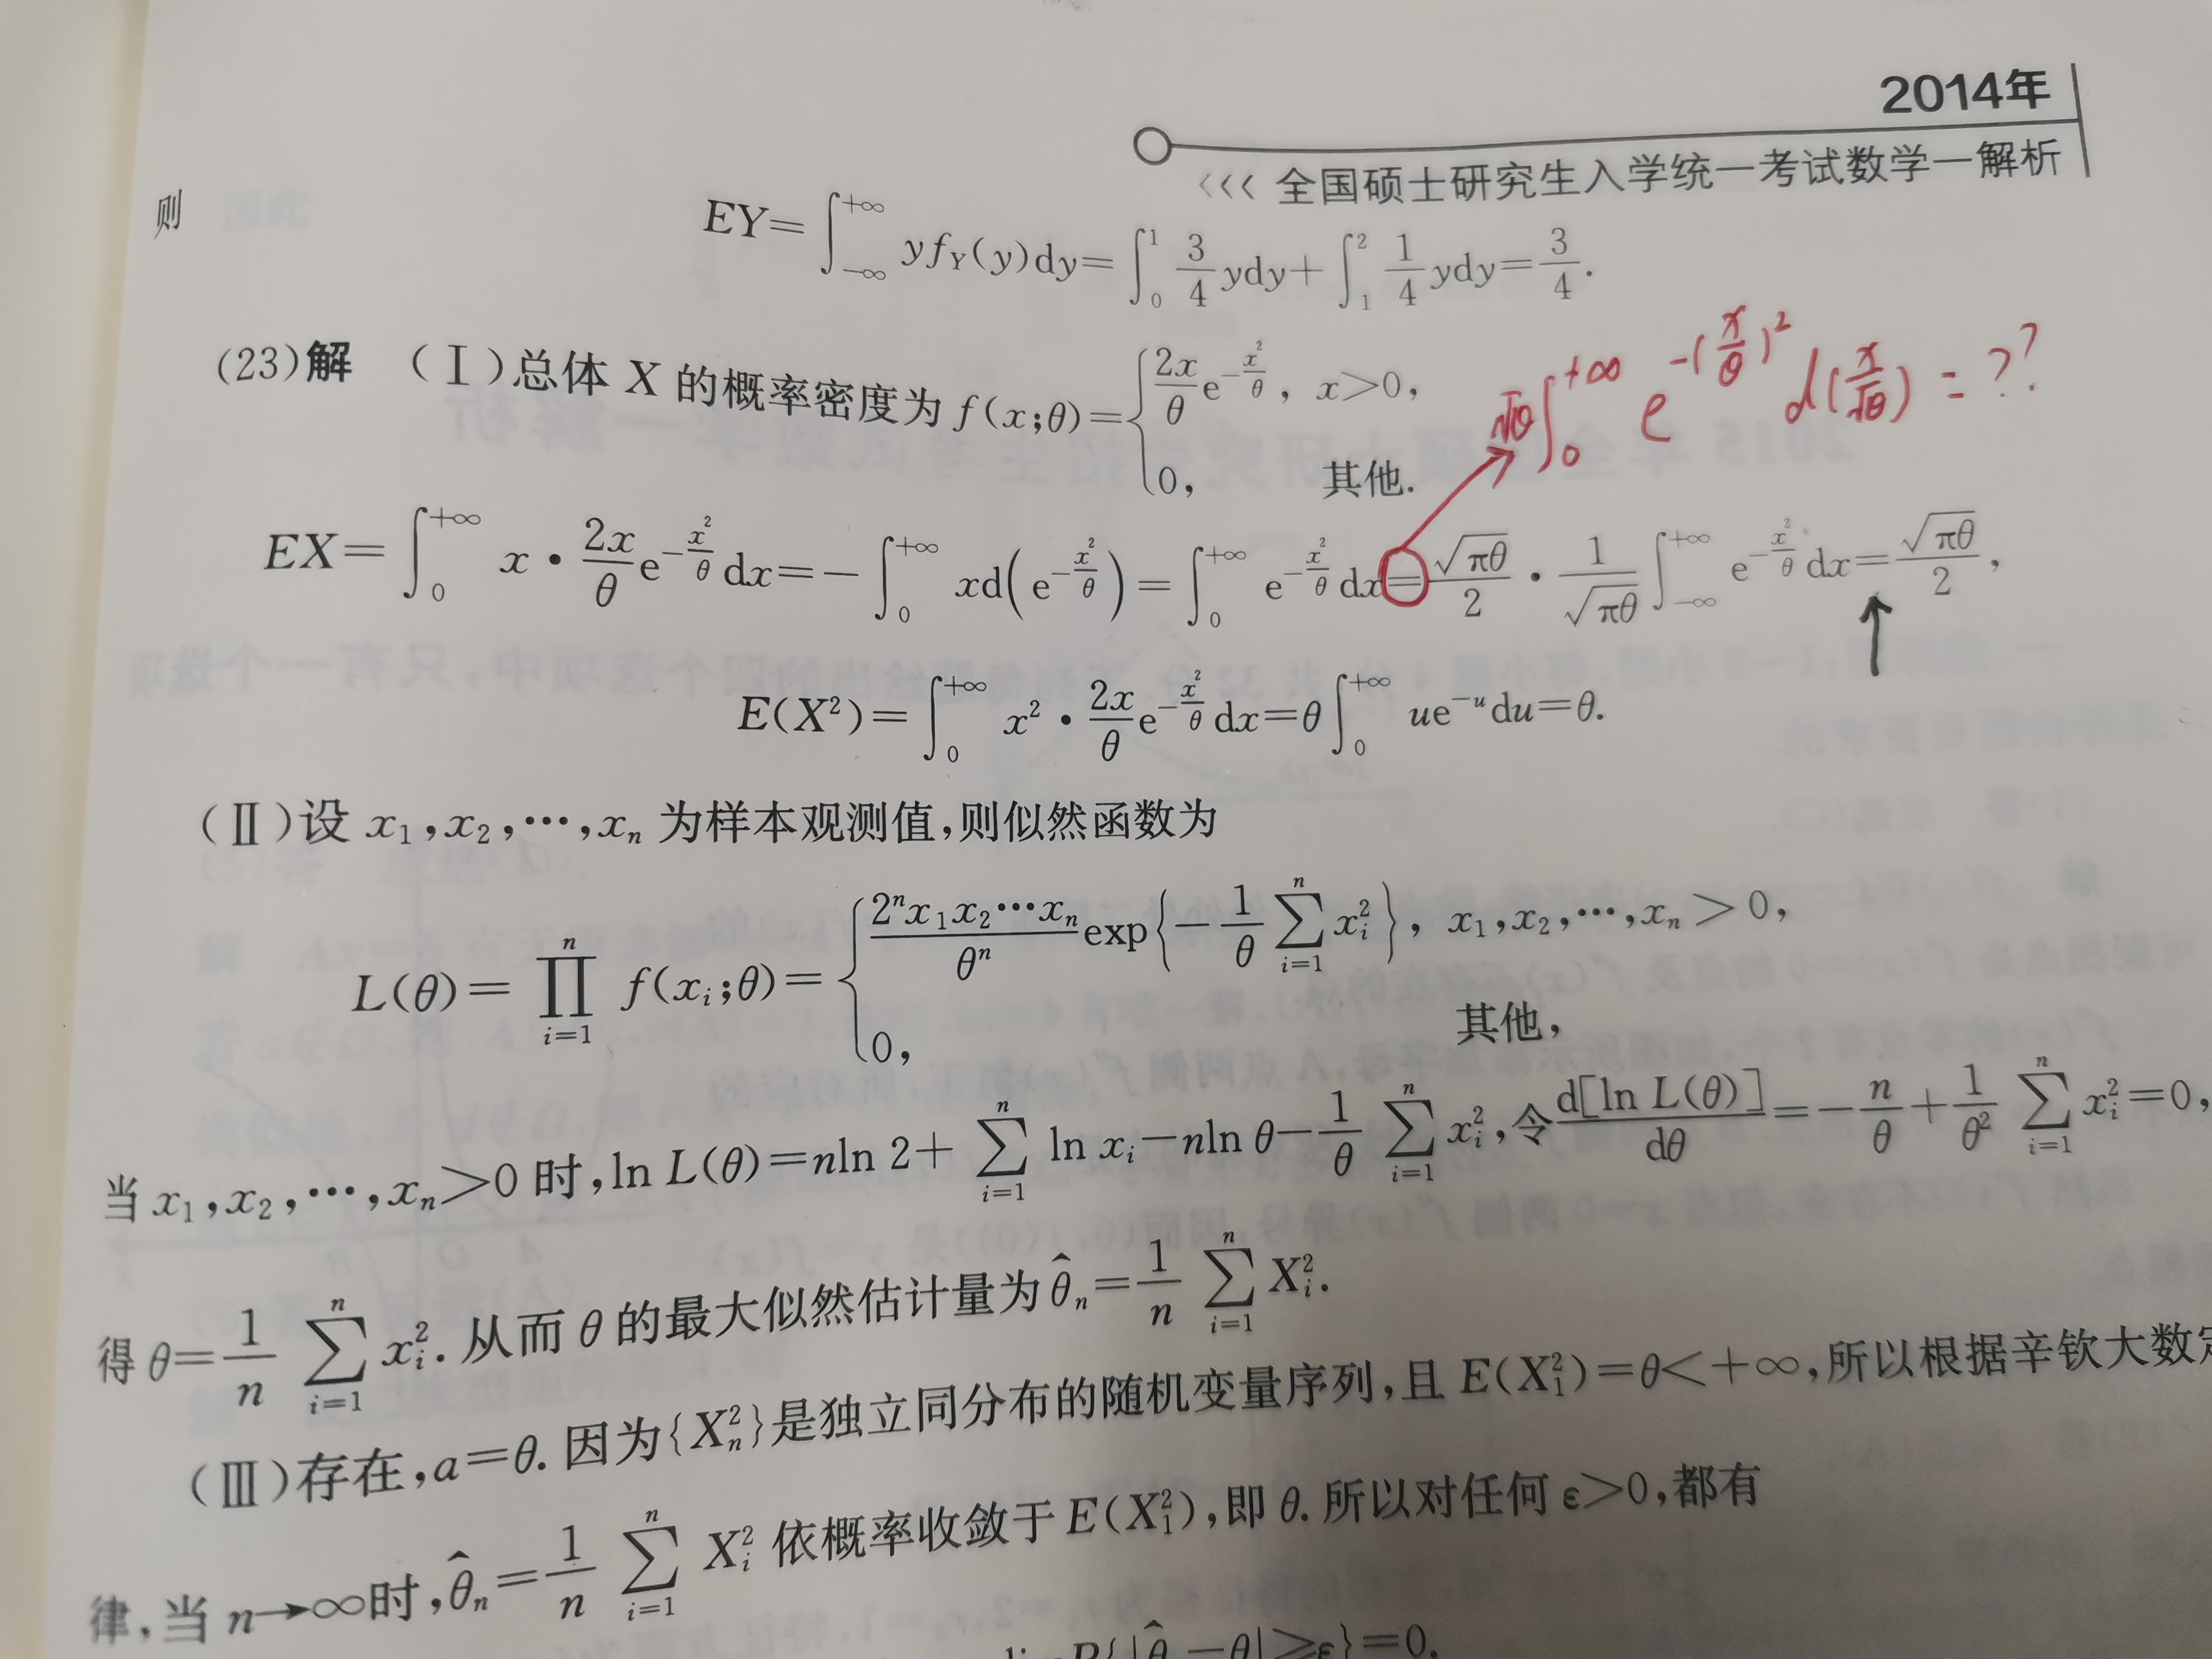 2014年
<<< 全国硕士研究生入学统一考试数学一解析
则
EY=∫_{-∞}^{+∞} yf_Y(y)dy=∫_0^1 3/4 ydy+∫_1^2 1/4 ydy=3/4.
(23)解 (Ⅰ)总体 X 的概率密度为 f(x;θ)={2x/θ e^{-x²/θ}, x>0, 0, 其他.
√θ∫_0^{+∞} e^{-(x/θ)²} d(x/√θ) = ??
EX=∫_0^{+∞} x·2x/θ e^{-x²/θ}dx=-∫_0^{+∞} xd(e^{-x²/θ})=∫_0^{+∞} e^{-x²/θ}dx=√πθ/2·1/√πθ∫_{-∞}^{+∞} e^{-x²/θ}dx=√πθ/2,
E(X²)=∫_0^{+∞} x²·2x/θ e^{-x²/θ}dx=θ∫_0^{+∞} ue^{-u}du=θ.
(Ⅱ)设 x₁,x₂,⋯,xₙ 为样本观测值,则似然函数为
L(θ)=∏_{i=1}^{n} f(x_i;θ)={2ⁿx₁x₂⋯xₙ/θⁿ exp{-1/θ ∑_{i=1}^{n} x_i²}, x₁,x₂,⋯,xₙ>0, 0, 其他,
当 x₁,x₂,⋯,xₙ>0 时,ln L(θ)=nln 2+∑_{i=1}^{n} ln x_i-nln θ-1/θ ∑_{i=1}^{n} x_i²,令d[ln L(θ)]/dθ=-n/θ+1/θ² ∑_{i=1}^{n} x_i²=0,
得 θ=1/n ∑_{i=1}^{n} x_i². 从而 θ 的最大似然估计量为 θ̂ₙ=1/n ∑_{i=1}^{n} X_i².
(Ⅲ)存在,a=θ. 因为{Xₙ²}是独立同分布的随机变量序列,且 E(X₁²)=θ<+∞,所以根据辛钦大数定
律,当 n→∞时,θ̂ₙ=1/n ∑_{i=1}^{n} X_i² 依概率收敛于 E(X₁²),即 θ. 所以对任何 ε>0,都有
P{|θ̂ -θ|≥ε}=0.